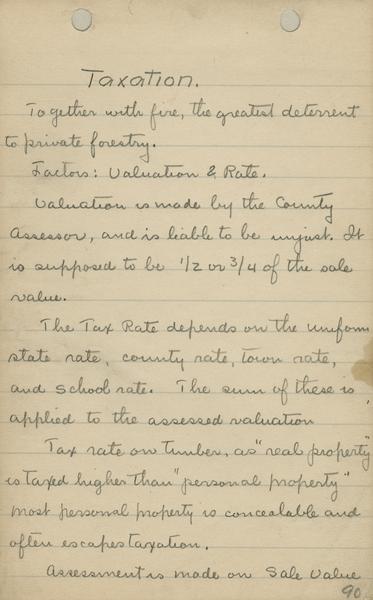 Taxation.
Together with fire, the greatest deterrent
to private forestry.
Factors: Valuation & Rate.
Valuation is made by the County
Assessor, and is liable to be unjust. It
is supposed to be 1/2 or 3/4 of the sale
value.
The Tax Rate depends on the uniform
state rate, county rate, town rate,
and school rate. The sum of these is
applied to the assessed valuation
Tax rate on timber, as "real property"
is taxed higher than "personal property"
most personal property is concealable and
often escapes taxation.
Assessment is made on Sale Value
90